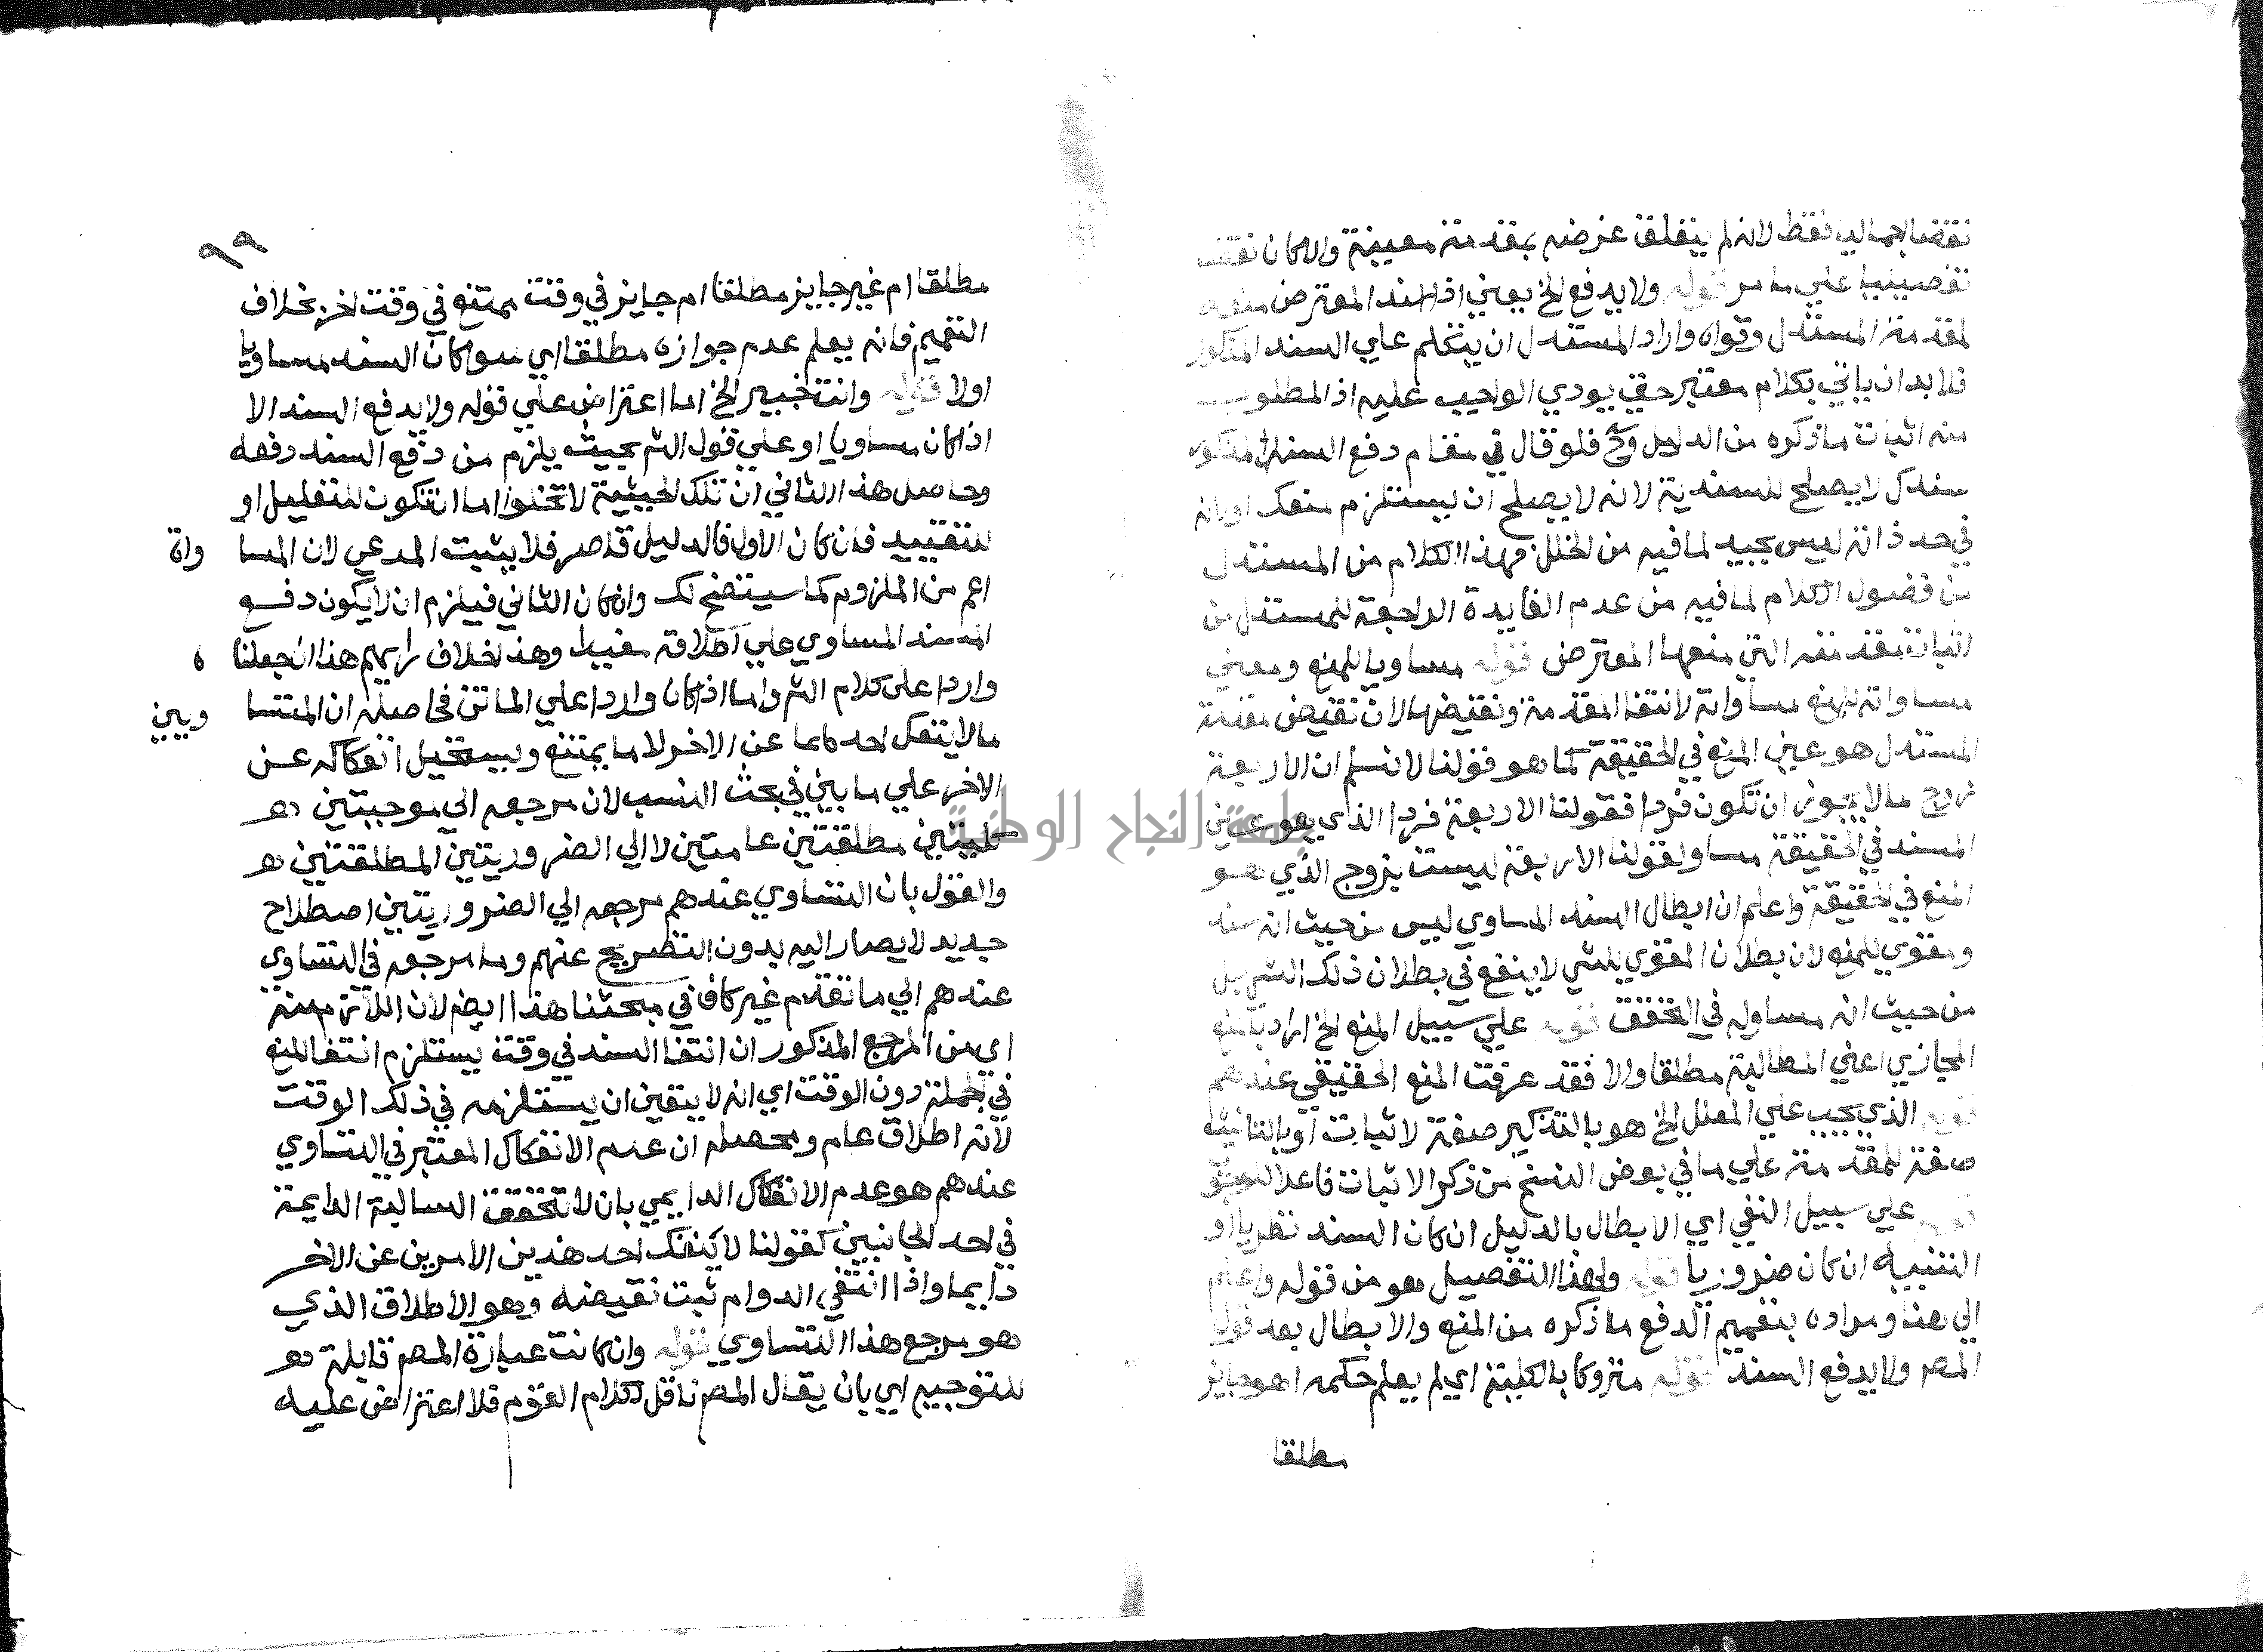 نقضا اجماليا فقط لانه لم يتعلق غرضه بمقدمة معينة والا كان نقضا
تفصيليا علي ما مر قوله ولا يدفع الخ يعني اذا اسند المعترض منعه
لمقدمة المستدل وقواه واراد المستدل ان يتكلم علي السند المذكور
فلا بد ان ياتي بكلام معتبر حتي يودي الواجب عليه اذ المطلوب
منه اثبات ما ذكره من الدليل وح فلو قال في مقام دفع السند المذكور
سندك لا يصلح للسندية لانه لا يصلح ان يستلزم منعك او انه
في حد ذاته ليس بجيد لما فيه من الخلل فهذا الكلام من المستدل
من فضول الكلام لما فيه من عدم الفايدة الراجعة للمستدل من
اثبات مقدمته التي منعها المعترض قوله مساويا للمنع ومعني
مساواته للمنع مساواته لانتفا المقدمة ونقيضها لان نقيض مقدمة
المستدل هو عين المنع في الحقيقة كما هو قولنا لا نسلم ان الاربعة
زوج ما لا يجوز ان تكون فردا فقولنا الاربعة فردا الذي هو عين
المسند في الحقيقة مساو لقولنا الاربعة ليست بزوج الذي هو
المنع في الحقيقة واعلم ان ابطال السند المساوي ليس من حيث انه سند
ومقوي للمنع لان بطلان المقوي للشي لا ينفع في بطلان ذلك الشي بل
من حيث انه مساو له في التحقق قوله علي سبيل المنع الخ اراد بالمنع
المجازي اعني المطالبة مطلقا والا فقد عرفت المنع الحقيقي عندهم
قوله الذي يجب علي المعلل الخ هو بالتذكير صفة لاثبات او بالتانيث
صفة للمقدمة علي ما في بعض النسخ من ذكر الاثبات فاعلا للعبثق
قوله علي سبيل النفي اي الابطال بالدليل ان كان السند نظريا او
التنبيه ان كان ضروريا قوله ولهذا التفصيل هو من قوله واعلم
الي هنا ومراده بتعميم الدفع ما ذكره من المنع والابطال بعد قول
المصـ ولا يدفع السند قوله متروكا بالكلية اي لم يعلم حكمه اهو جايز
مطلقا
٩٩
مطلقا ام غير جايز مطلقا ام جايز في وقت ممتنع في وقت اخر بخلاف
التعميم فانه يعلم عدم جوازه مطلقا اي سوا كان السند مساويا
اولا قوله وانت خبير الخ اما اعتراض علي قوله ولا يدفع السند الا
اذا كان مساويا او علي قول الشـ بحيث يلزم من دفع السند دفعه
وحاصل هذا الثاني ان تلك الحيثية لا تخلوا اما ان تكون للتعليل او
للتقييد فان كان الاول فالدليل قاصر فلا يثبت المدعي لان المسا واة
اعم من الملزوم كما سيتضح لك وان كان الثاني فيلزم ان لا يكون دفع
السند المساوي علي اطلاقه مفيدا وهذا خلاف رايهم هذا ان جعلنا ه
واردا علي كلام الشـ واما اذا كان واردا علي الماتن فحاصله ان المتسا ويين
ما لا ينفك احدهما عن الاخر لا ما يمتنع ويستحيل انفكاكه عن
الاخر علي ما بين في بحث النسب لان مرجعه الي موجبتين
كليتين مطلقتين عامتين لا الي الضروريتين المطلقتين
والقول بان التساوي عندهم مرجعه الي الضروريتين اصطلاح
جديد لا يصار اليه بدون التصريح عنهم وما مرجعه في التساوي
عندهم الي ما تقدم غير كاف في مبحثنا هذا ايضـ لان اللازم منه
اي من المرجع المذكور ان انتفا السند في وقت يستلزم انتفا المنع
في الجملة دون الوقت اي انه لا يتعين ان يستلزمه في ذلك الوقت
لانه اطلاق عام ومحصله ان عدم الانفكاك المعتبر في التساوي
عندهم هو عدم الانفكاك الدايمي بان لا تتحقق السالبة الدايمة
في احد الجانبين كقولنا لا ينفك احد هذين الامرين عن الاخر
دايما واذا انتفي الدوام ثبت نقيضه وهو الاطلاق الذي
هو مرجع هذا التساوي قوله وان كانت عبارة المصـ قابلة
للتوجيه اي بان يقال المصـ ناقل لكلام القوم فلا اعتراض عليه
جامعة النجاح الوطنية